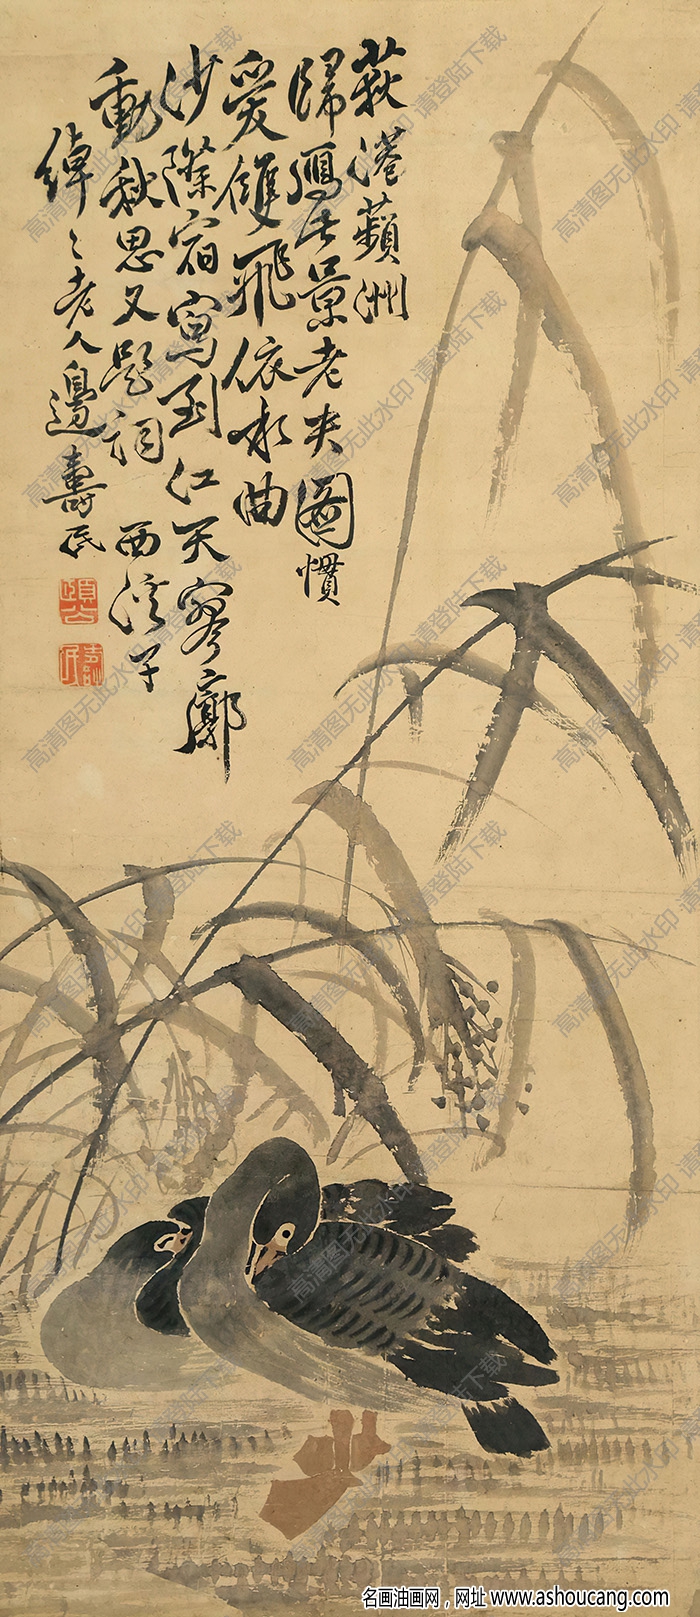 荻港蘋洲
歸鴈生景老夫圖慣
愛雙飛依水曲
沙際宿寫到江天寥廓
動秋思又題詞 西淙子
綽〻老人邊壽民
頤公
壽民
高清图无此水印 请登陆下载
名画油画网，网址 www.ashoucang.com